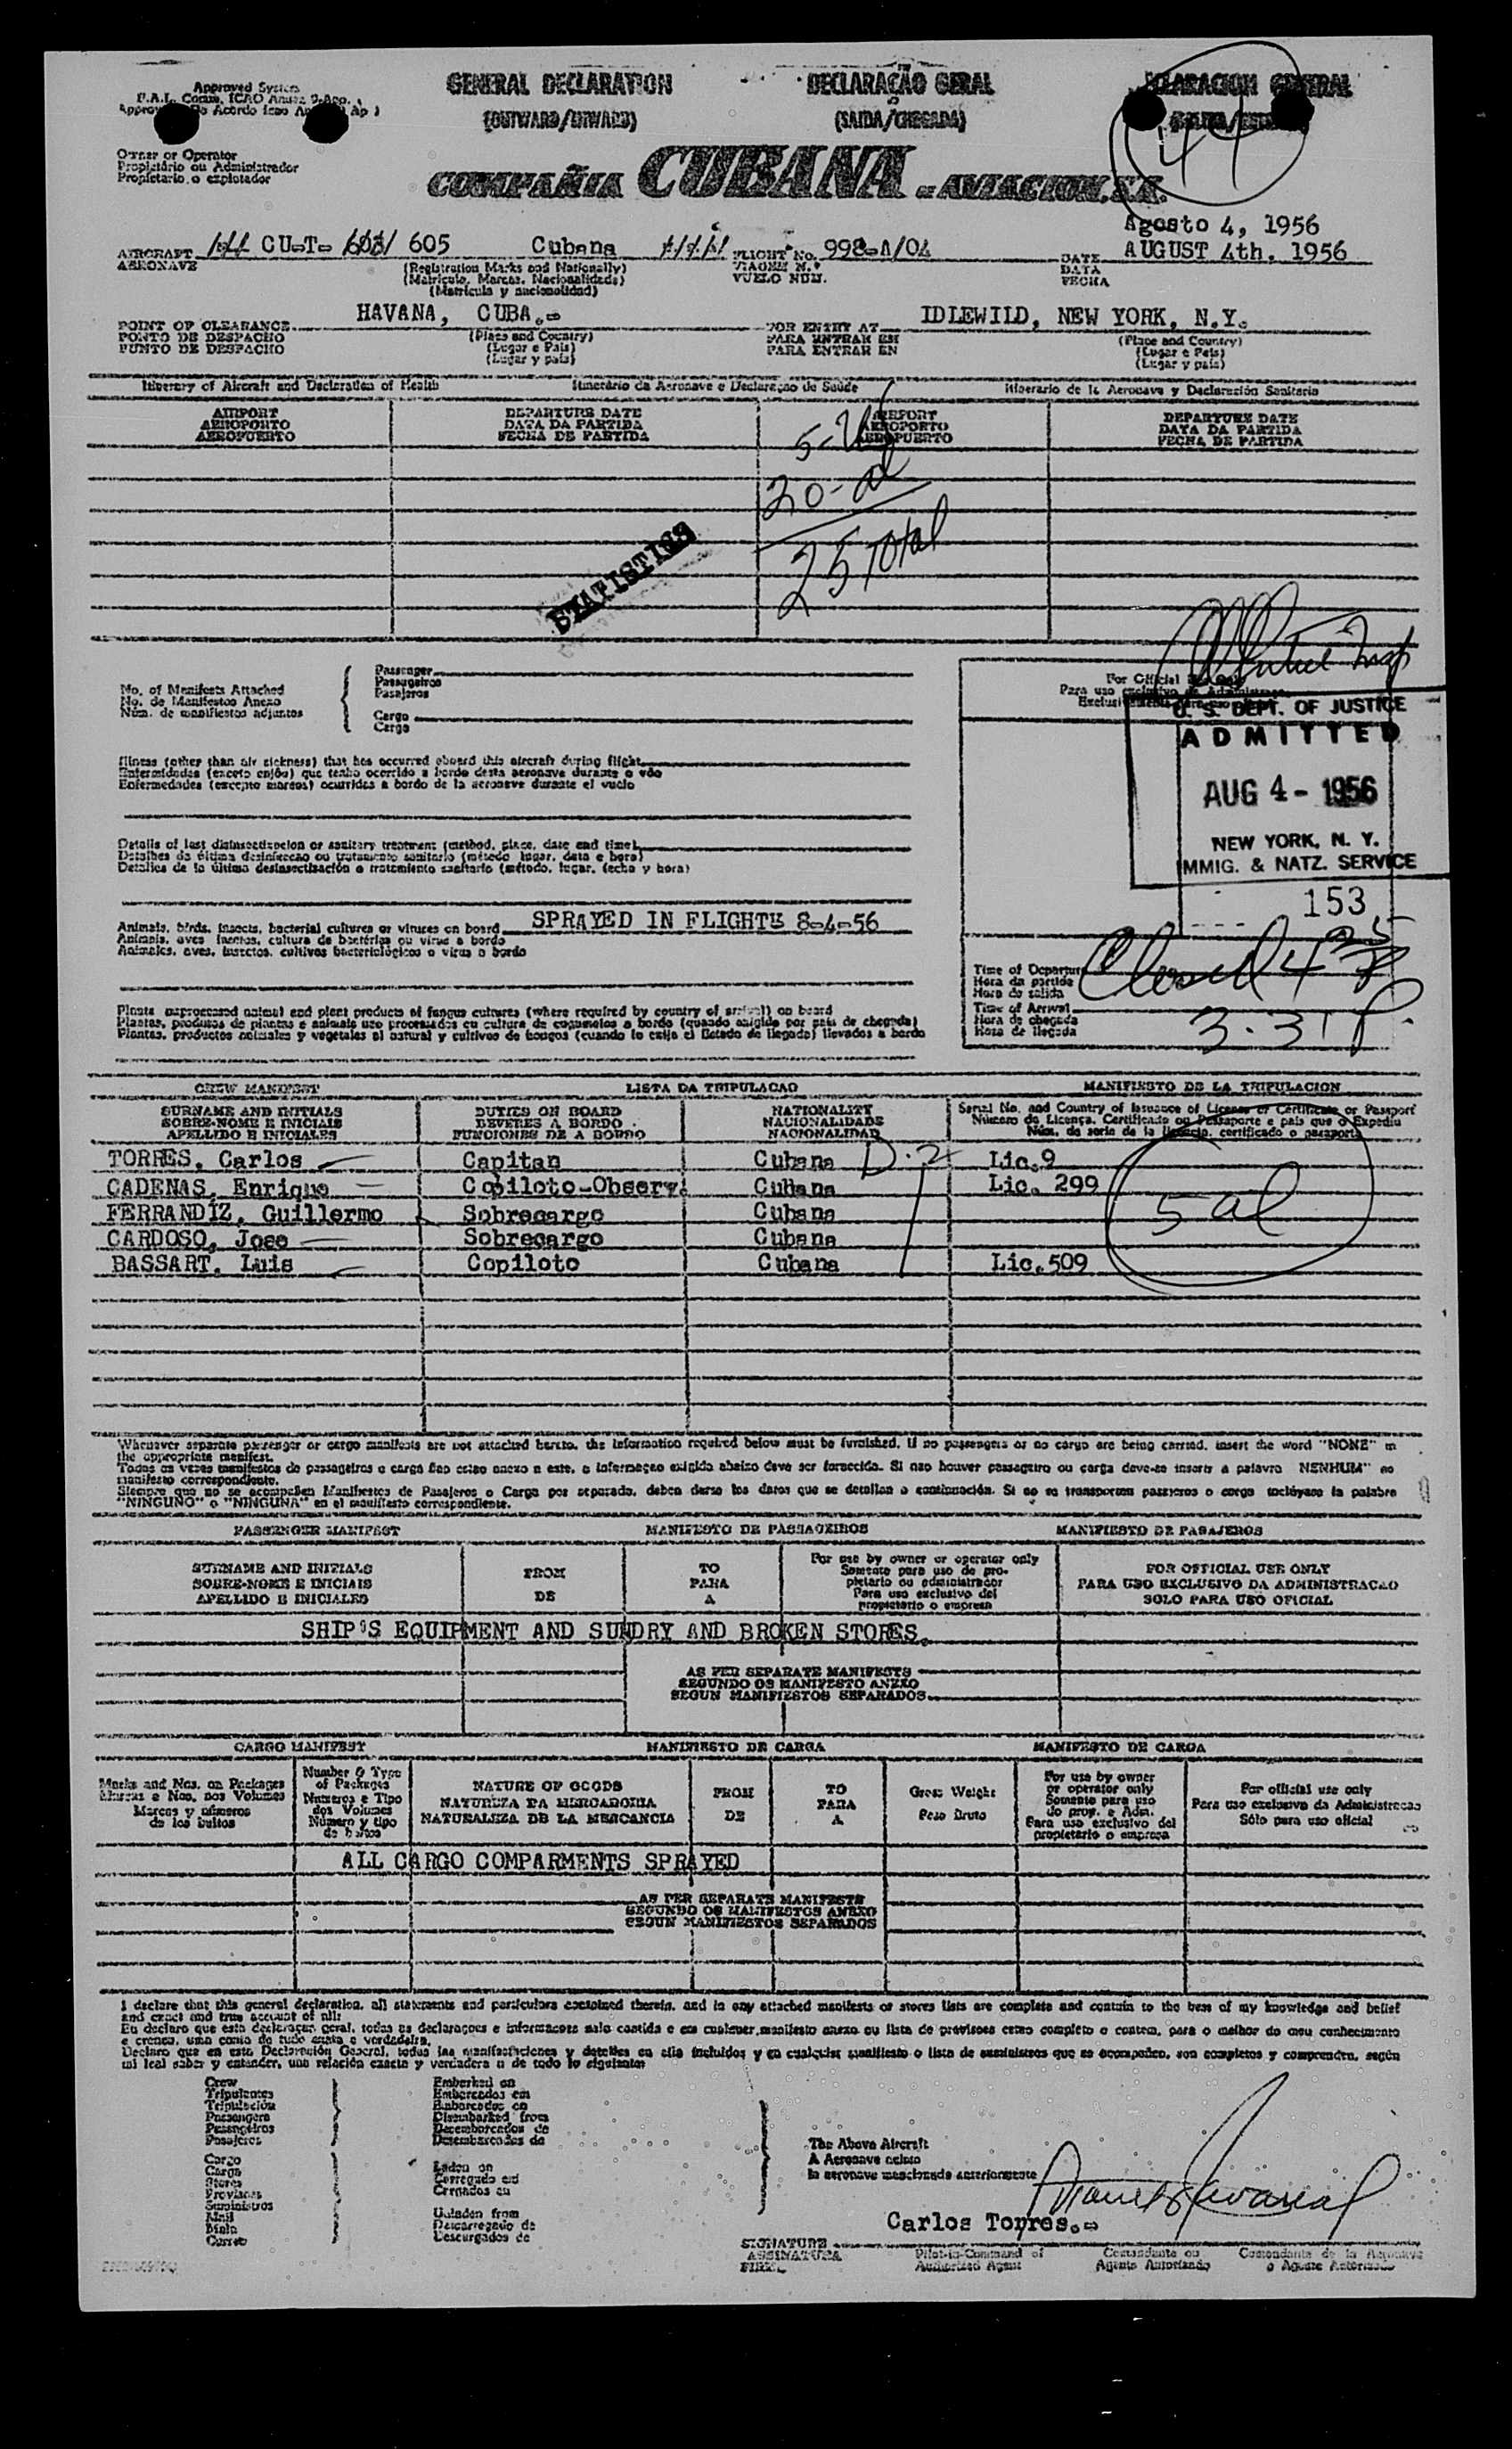 Approved System
F.A.L. Comm. ICAO Annex 9-App.
GENERAL DECLARATION
(OUTWARD/INWARD)
DECLARAÇÃO GERAL
(SAIDA/CHEGADA)
44
Owner or Operator
Propietário ou Administrador
Propietario o explotador
COMPAÑIA CUBANA DE AVIACION, S.A.
Agosto 4, 1956
AIRCRAFT
AERONAVE
CU-T- 605 Cubana
FLIGHT No. 998-A/04
VIAGEM N.º
VUELO NUM.
DATE AUGUST 4th. 1956
DATA
FECHA
(Registration Marks and Nationally)
(Matriculo, Marcas, Nacionalidade)
(Matricula y nacionalidad)
POINT OF CLEARANCE HAVANA, CUBA.-
PONTO DE DESPACHO
PUNTO DE DESPACHO
(Place and Country)
(Lugar e Pais)
(Lugar y pais)
FOR ENTRY AT IDLEWILD, NEW YORK, N.Y.
PARA ENTRAR EM
PARA ENTRAR EN
(Place and Country)
(Lugar e Pais)
(Lugar y pais)
Itinerary of Aircraft and Declaration of Health
Itinerário da Aeronave e Declaração de Saúde
Itinerario de la Aeronave y Declaración Sanitaria
AIRPORT
AEROPORTO
AEROPUERTO
DEPARTURE DATE
DATA DA PARTIDA
FECHA DE PARTIDA
AIRPORT
AEROPORTO
AEROPUERTO
DEPARTURE DATE
DATA DA PARTIDA
FECHA DE PARTIDA
20-al
25 Total
STATISTICS
No. of Manifests Attached
No. de Manifestos Anexo
Núm. de manifiestos adjuntos
Passenger
Passageiros
Pasajeros
Cargo
Cargo
For Official Use Only
U. S. DEPT. OF JUSTICE
ADMITTED
AUG 4 - 1956
NEW YORK, N. Y.
IMMIG. & NATZ. SERVICE
153
Illness (other than air sickness) that has occurred aboard this aircraft during flight
Enfermidades (exceto enjôo) que tenha ocorrido a bordo desta aeronave durante o vôo
Enfermedades (excepto mareos) ocurridas a bordo de la aeronave durante el vuelo
Details of last disinsectizacion or sanitary treatment (method, place, date and time)
Detalhes da última desinfeccao ou tratamento sanitario (método lugar, data e hora)
Detalles de la última desinsectización o tratamiento sanitario (método, lugar, fecha y hora)
Animals, birds, insects, bacterial cultures or viruses on board SPRAYED IN FLIGHT: 8-4-56
Animais, aves insetos, cultura de bactérias ou virus a bordo
Animales, aves, insectos, cultivos bacteriológicos o virus a bordo
Time of Departure
Hora da partida
Hora de salida
Closed 4 25 P
Time of Arrival
Hora de chegada
Hora de llegada
3.31 P.
Plants unprocessed animal and plant products of fungus cultures (where required by country of arrival) on board
Plantas, produtos de plantas e animais nao processados ou cultura de cogumelos a bordo (quando exigida por pais de chegada)
Plantas, productos animales y vegetales al natural y cultivos de hongos (cuando lo exija el Estado de llegada) llevados a bordo
CREW MANIFEST
LISTA DA TRIPULACAO
MANIFIESTO DE LA TRIPULACION
SURNAME AND INITIALS
SOBRE-NOME E INICIAIS
APELLIDO E INICIALES
DUTIES ON BOARD
DEVERES A BORDO
FUNCIONES DE A BORDO
NATIONALITY
NACIONALIDADE
NACIONALIDAD
Serial No. and Country of Issuance of License or Certificate or Passport
Número da Licença, Certificado ou Passaporte e pais que o Expediu
Núm. de serie de la licencia, certificado o pasaporte
TORRES, Carlos Capitan Cubana D-2 Lic.9
CADENAS, Enrique Copiloto-Observ. Cubana Lic. 299
FERRANDIZ, Guillermo Sobrecargo Cubana
CARDOSO, Jose Sobrecargo Cubana
BASSART, Luis Copiloto Cubana Lic.509
5 al
Whenever separate passenger or cargo manifests are not attached hereto, the information required below must be furnished. If no passengers or no cargo are being carried, insert the word "NONE" in
the appropriate manifest.
Todas as vezes manifestos de passageiros o carga nao estao anexo a este, a informaçao exigida abaixo deve ser fornecida. Si nao houver passageiro ou carga deve-se inserir a palavra NENHUM" no
manifesto correspondiente.
Siempre que no se acompañen Manifiestos de Pasajeros o Carga por separado, deben darse los datos que se detallan a continuación. Si no se transportan pasajeros o carga inclúyase la palabra
"NINGUNO" o "NINGUNA" en el manifiesto correspondiente.
PASSENGER MANIFEST
MANIFESTO DE PASSAGEIROS
MANIFIESTO DE PASAJEROS
SURNAME AND INITIALS
SOBRE-NOME E INICIAIS
APELLIDO E INICIALES
FROM
DE
TO
PARA
A
For use by owner or operator only
Somente para uso de pro-
pietario ou administrador
Para uso exclusivo del
propietario o empresa
FOR OFFICIAL USE ONLY
PARA USO EXCLUSIVO DA ADMINISTRACAO
SOLO PARA USO OFICIAL
SHIP'S EQUIPMENT AND SUNDRY AND BROKEN STORES.
AS PER SEPARATE MANIFESTS
SEGUNDO OS MANIFESTO ANEXO
SEGUN MANIFIESTOS SEPARADOS
CARGO MANIFEST
MANIFIESTO DE CARGA
MANIFESTO DE CARGA
Marks and Nos. on Packages
Marcas e Nos. nos Volumes
Marcas y números
de los bultos
Number & Type
of Packages
Numeros e Tipo
dos Volumes
Número y tipo
de bultos
NATURE OF GOODS
NATUREZA DA MERCADORIA
NATURALEZA DE LA MERCANCIA
FROM
DE
TO
PARA
A
Gross Weight
Peso Bruto
For use by owner
or operator only
Somente para uso
do prop. e Adm.
Para uso exclusivo del
propietario o empresa
For official use only
Para uso exclusivo da Administracao
Sólo para uso oficial
ALL CARGO COMPARMENTS SPRAYED
AS PER SEPARATE MANIFESTS
SEGUNDO OS MANIFESTOS ANEXO
SEGUN MANIFIESTOS SEPARADOS
I declare that this general declaration, all statements and particulars contained therein, and in any attached manifests or stores lists are complete and contain to the best of my knowledge and belief
and exact and true account of all:
Crew
Tripulantes
Tripulación
Passengers
Passageiros
Pasajeros
Cargo
Carga
Stores
Provisoes
Suministros
Mail
Mala
Correo
Embarked on
Embarcados em
Embarcados en
Disembarked from
Desembarcados de
Desembarcados de
Laden on
Carregado em
Cargados en
Unladen from
Descarregado de
Descargados de
The Above Aircraft
A Aeronave acima
la aeronave mencionada anteriormente
Carlos Torres.-
SIGNATURE
ASSINATURA
FIRMA
Pilot-in-Command of
Authorized Agent
Comandante ou
Agente Autorizado
Comandante de la Aeronave
o Agente Autorizado